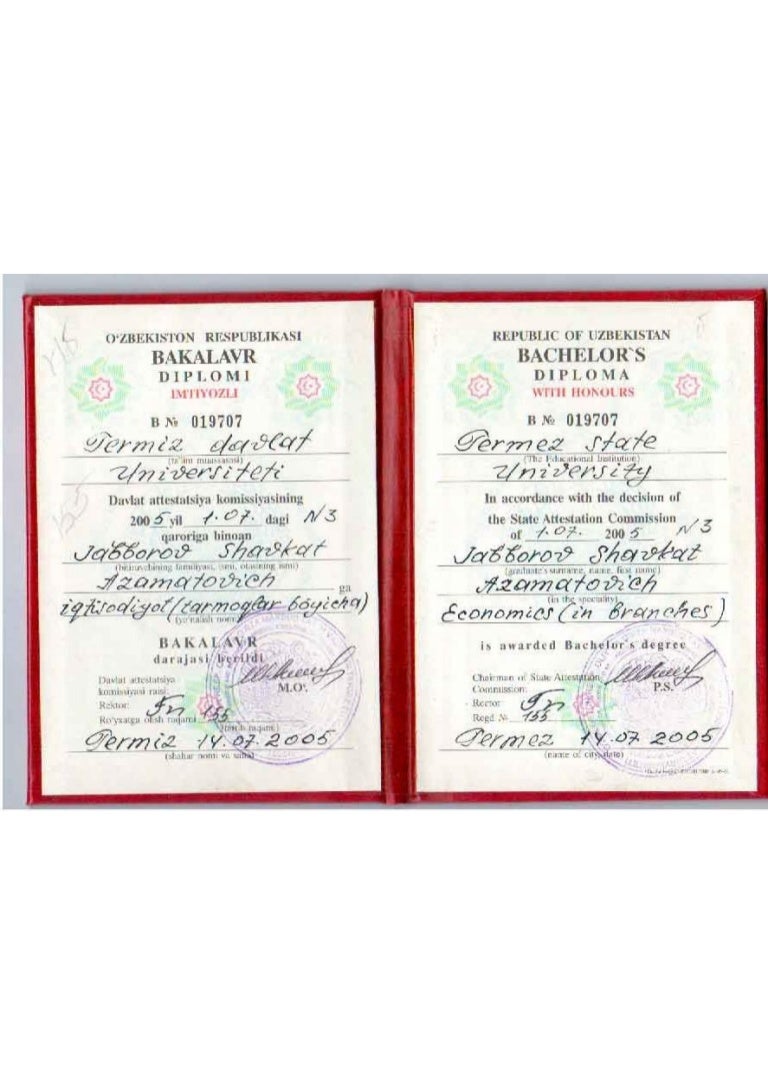 O‘ZBEKISTON RESPUBLIKASI
BAKALAVR
DIPLOMI
IMTIYOZLI
B № 019707
Termiz davlat
(ta'lim muassasasi)
Universiteti
Davlat attestatsiya komissiyasining
2005 yil 1.07. dagi N3
qaroriga binoan
Jabborov Shavkat
(bitiruvchining familiyasi, ismi, otasining ismi)
Azamatovich ga
iqtisodiyot (tarmoqlar bóyicha)
(yo‘nalish nomi)
BAKALAVR
darajasi berildi
Davlat attestatsiya
komissiyasi raisi:
M.O‘.
Rektor:
Ro‘yxatga olish raqami 155
Termiz 14.07.2005
(shahar nomi va sana)
REPUBLIC OF UZBEKISTAN
BACHELOR`S
DIPLOMA
WITH HONOURS
B № 019707
Termez state
(The Educational Institution)
University
In accordance with the decision of
the State Attestation Commission
of 1.07. 2005 N3
Jabborov Shavkat
(graduate's surname, name, first name)
Azamatovich
(in the speciality)
Economics (in branches)
is awarded Bachelor's degree
Chairman of State Attestation
Commission:
P.S.
Rector
Regd № 155
Termez 14.07.2005
(name of city, date)